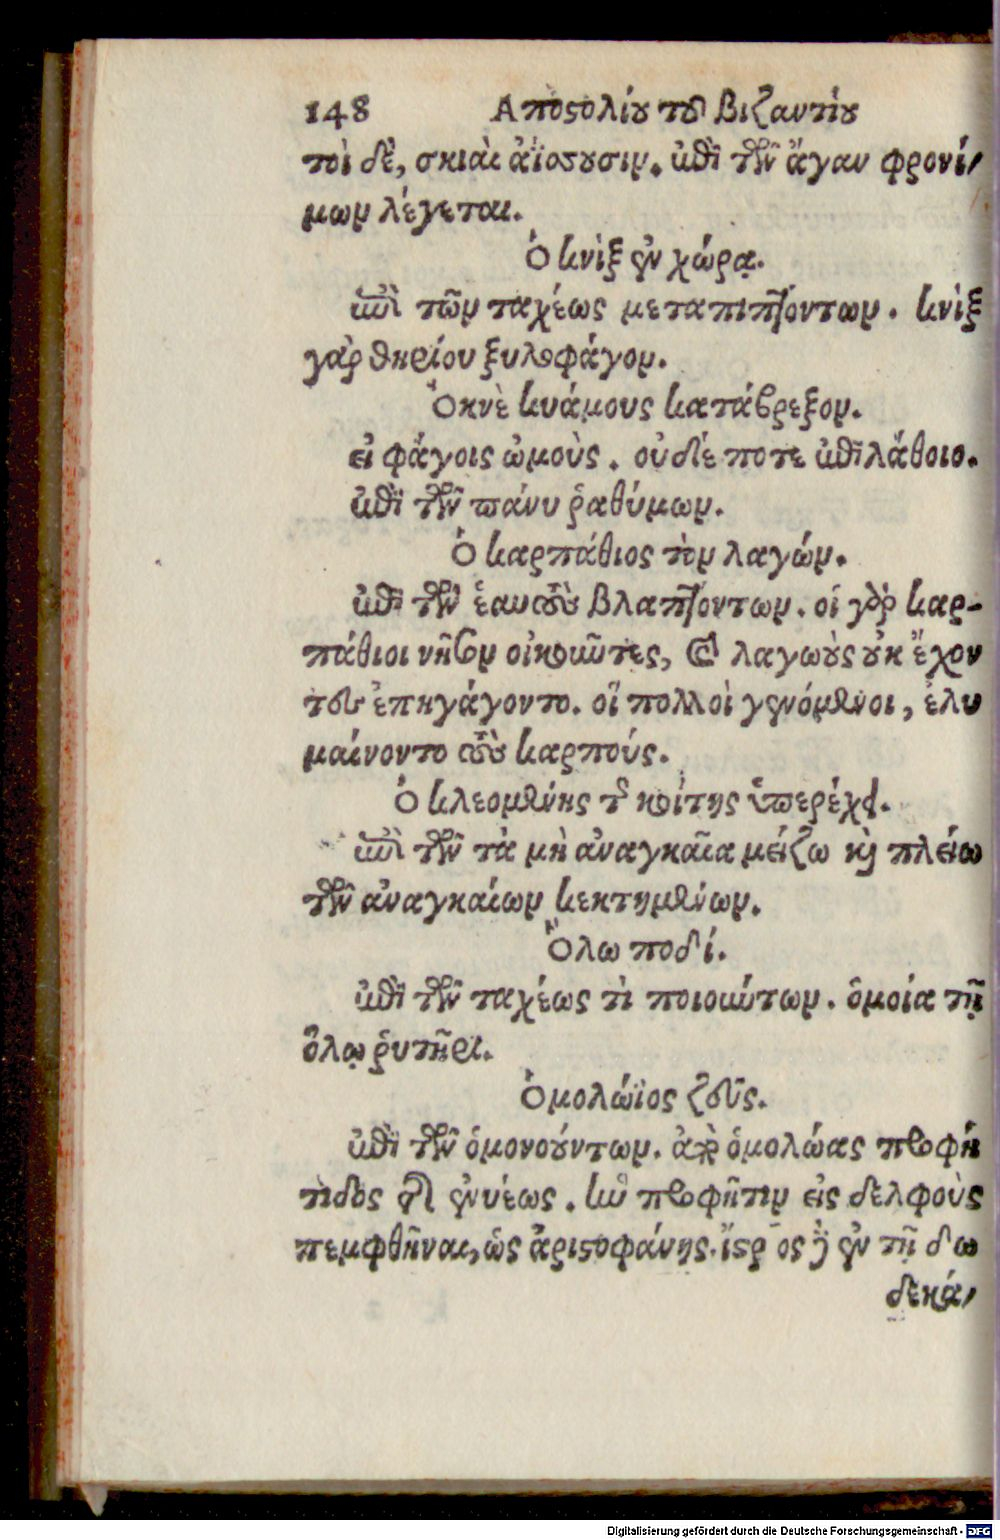 148 Ἀποστολίου τοῦ βυζαντίου
τοὶ δὲ, σκιαὶ ἀΐσσουσιν. ἐπὶ τῶν ἄγαν φρονί-
μων λέγεται.
Ὁ κνὶξ ἐν χώρᾳ.
ἐπὶ τῶν ταχέως μεταπιπτόντων. κνὶξ
γὰρ θηρίου ξυλοφάγον.
Ὀκνὲ κυάμους κατάβρεξον.
εἰ φάγοις ὠμοὺς. οὐδέποτε ἐπιλάθοιο.
ἐπὶ τῶν πάνυ ῥαθύμων.
Ὁ καρπάθιος τὸν λαγών.
ἐπὶ τῶν ἑαυτοὺς βλαπτόντων. οἱ γὰρ καρ-
πάθιοι νῆσον οἰκοῦντες, καὶ λαγωοὺς οὐκ ἔχον
τες ἐπηγάγοντο. οἳ πολλοὶ γενόμενοι, ἐλυ
μαίνοντο τοὺς καρπούς.
Ὁ κλεομένης τῆς κοίτης ὑπερέχει.
ἐπὶ τῶν τὰ μὴ ἀναγκαῖα μείζω καὶ πλείω
τῶν ἀναγκαίων κεκτημένων.
Ὅλω ποδί.
ἐπὶ τῶν ταχέως τὶ ποιούντων. ὁμοία τῇ
ὅλῳ ῥυτῆρι.
Ὁμολώϊος ζεῦς.
ἐπὶ τῶν ὁμονούντων. ἀπὸ ὁμολώας προφή
τιδος τῆς ἐνυέως. ἣν προφῆτιν εἰς δελφοὺς
πεμφθῆναι, ὡς ἀριστοφάνης. ἴστρος δὲ ἐν τῇ δω
δεκά-
Digitalisierung gefördert durch die Deutsche Forschungsgemeinschaft - DFG